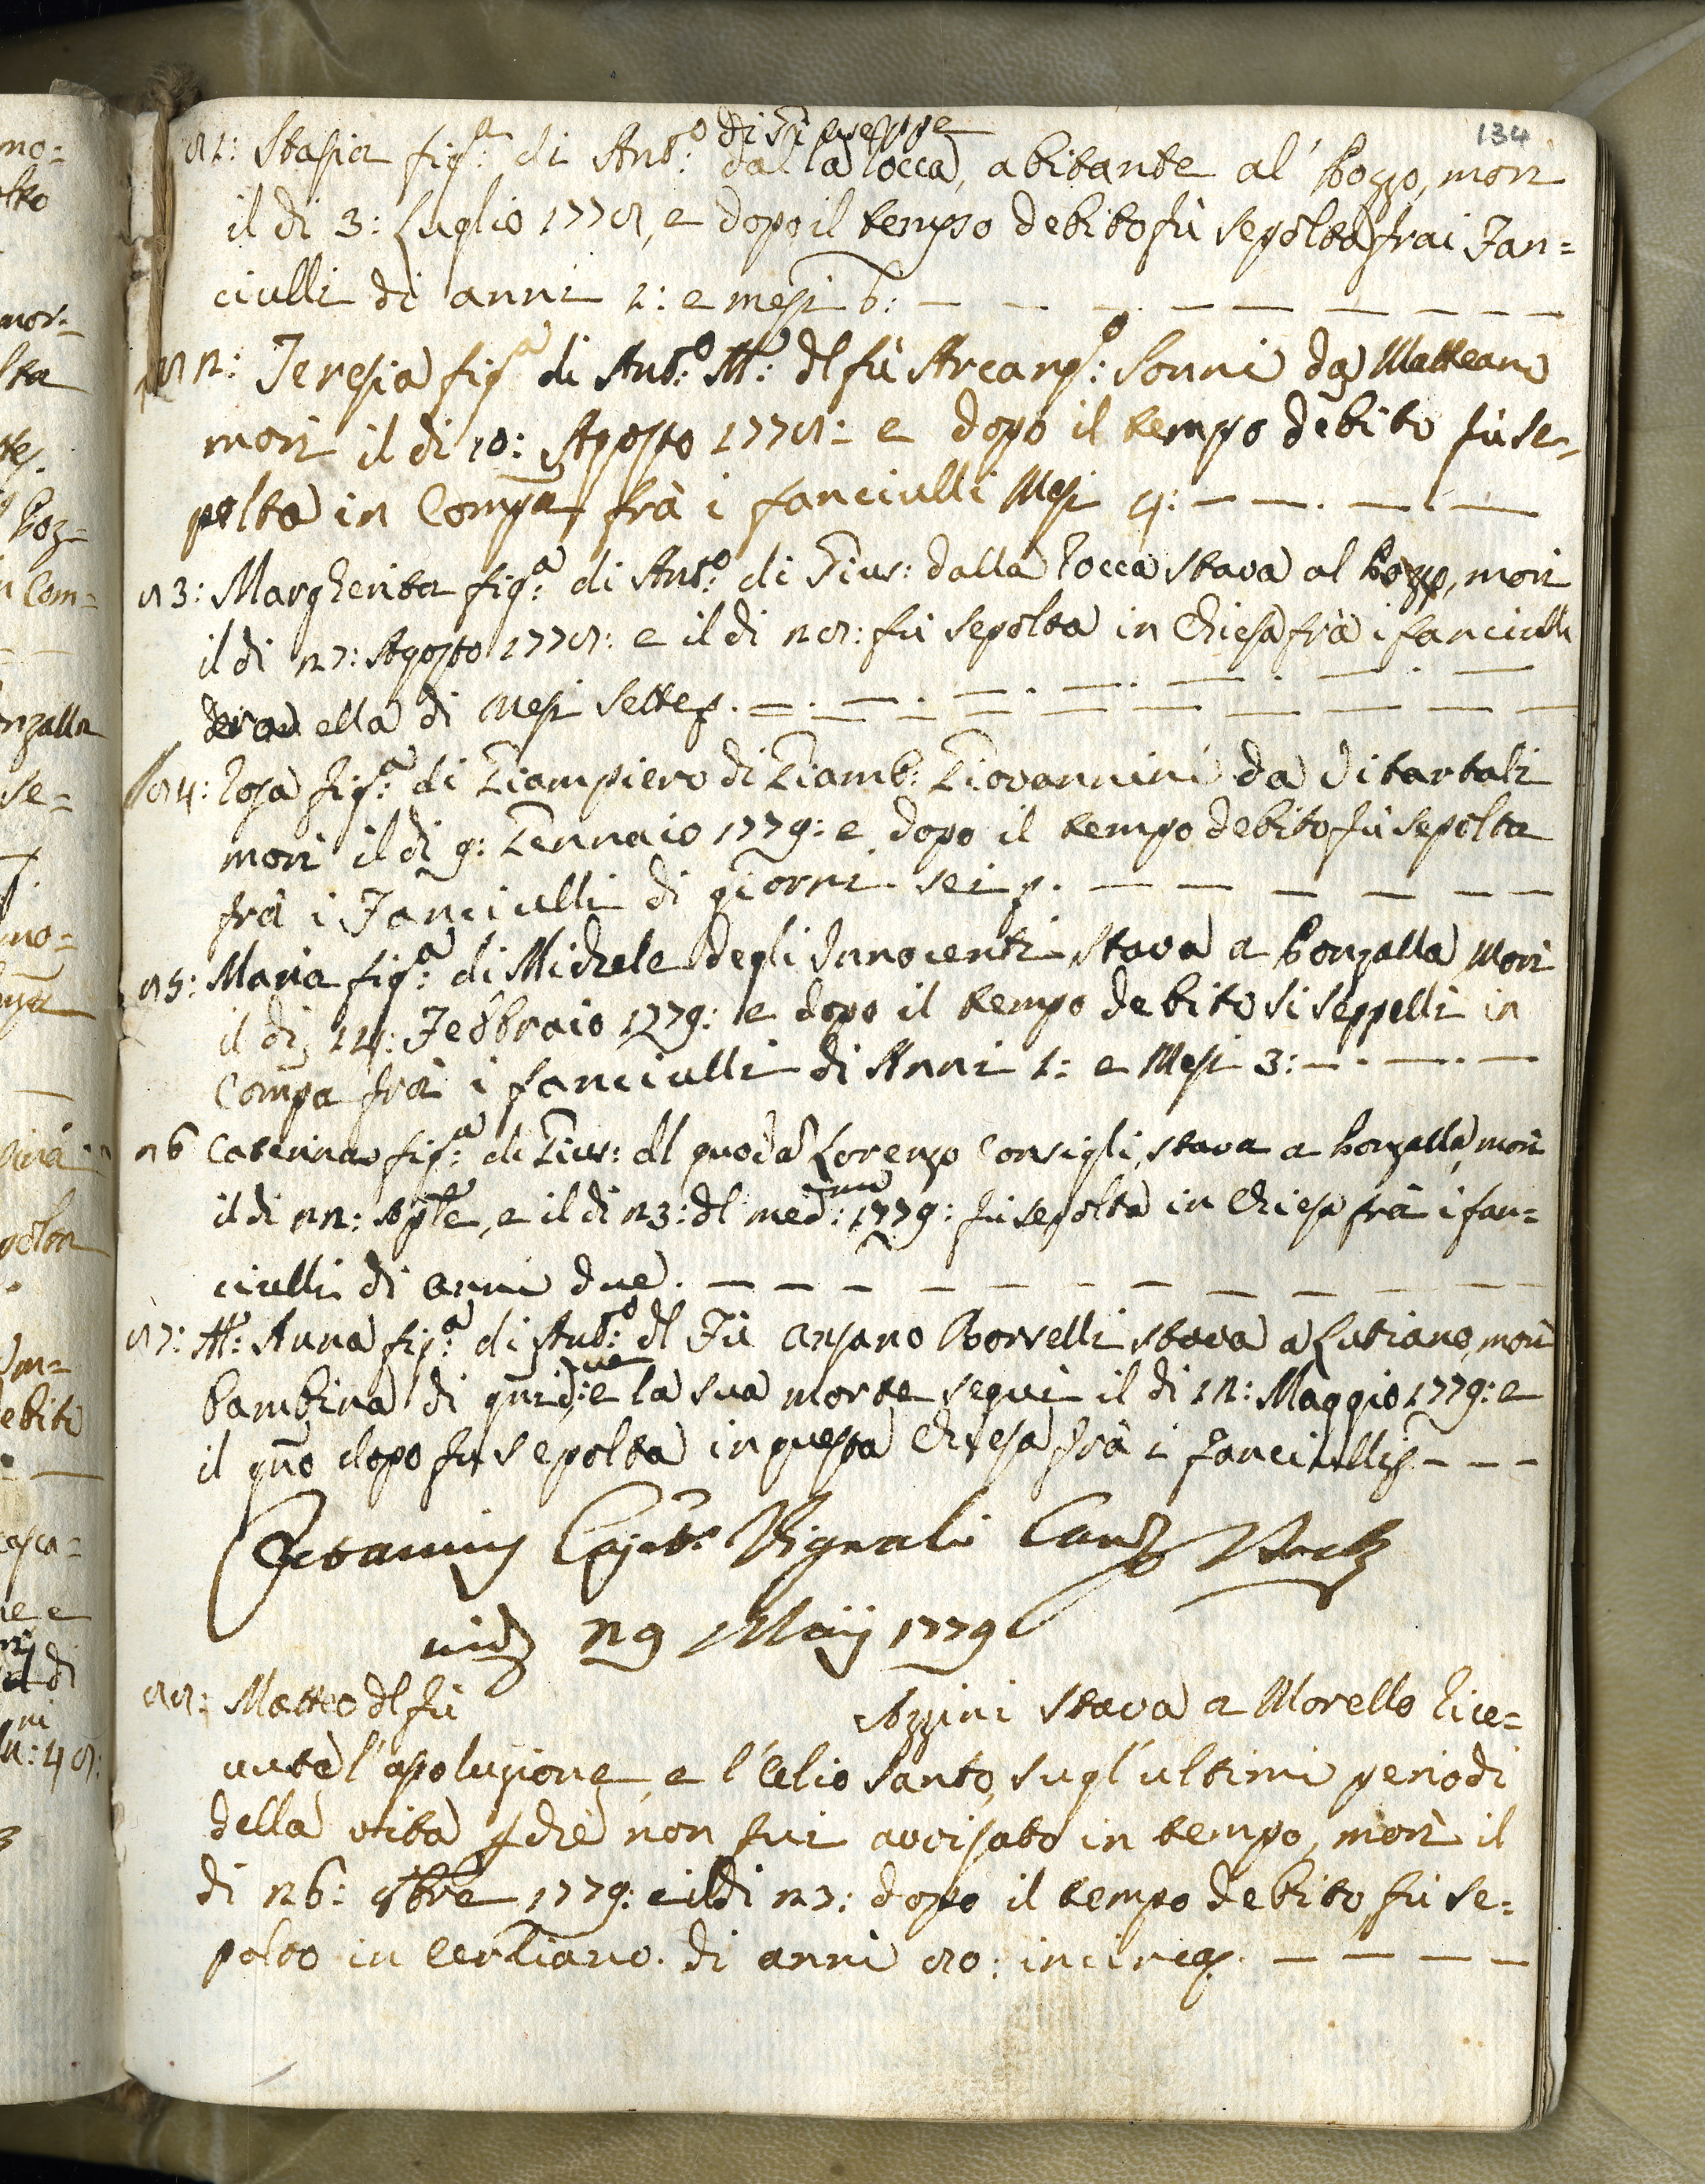 134
81: Stasia fig:a di Ant:o di Giuseppe dalla Rocca, abitante al' Pozzo, morì
il di 3: Luglio 1778, e dopo il tempo debito fù sepolta frai Fan=
ciulli di anni 1: e mesi 6:
82: Teresia fig:a di Ant:o M:a dl fù Arcang:o Sonni da Matteano
morì il di 10: Agosto 1778: e dopo il tempo debito fù se=
polta in Comp.a frà i fanciulli Mesi 4:
83: Margherita fig:a di Ant:o di Gius: dalla Rocca stava al Pozzo, morì
il di 27: Agosto 1778: e il di 28: fù sepolta in Chiesa frà i fanciulli
ella di Mesi Sette.
84: Rosa fig:a di Giampiero di Giamb: Giovannini da Vitartali
morì il di 9: Gennaio 1779: e dopo il tempo debito fù sepolta
frà i Fanciulli di giorni sei.
85: Maria fig:a di Michele degli Innocenti stava a Ponzalla Morì
il di 14: Febbraio 1779: e dopo il tempo debito si seppellì in
Compa frà i fanciulli di Anni 1: e Mesi 3:
86 Caterina fig:a di Gius: dl quodã Lorenzo Consigli, stava a Ponzalla, morì
il di 22: Aple, e il di 23: dl med:mo 1779: fù sepolta in Chiesa frà i fan=
ciulli di anni due.
87: M: Anna fig:a di Ant:o dl Fù Ansano Borselli stava a Lutiano, morì
bambina di e la sua morte seguì il di 12: Maggio 1779: e
il gno dopo fù sepolta in questa Chiesa frà i fanciulli
Vignali
29 Maij 1779
88: Matteo dl fù Sozzini stava a Morello Rice=
vuta l'asoluzione, e l'Olio Santo, sugl'ultimi periodi
della vita pchè non fui avvisato in tempo, morì il
di 26: 9bre 1779: e il di 27: dopo il tempo debito fù se=
polto in Cerliano. di anni 80: incirca.